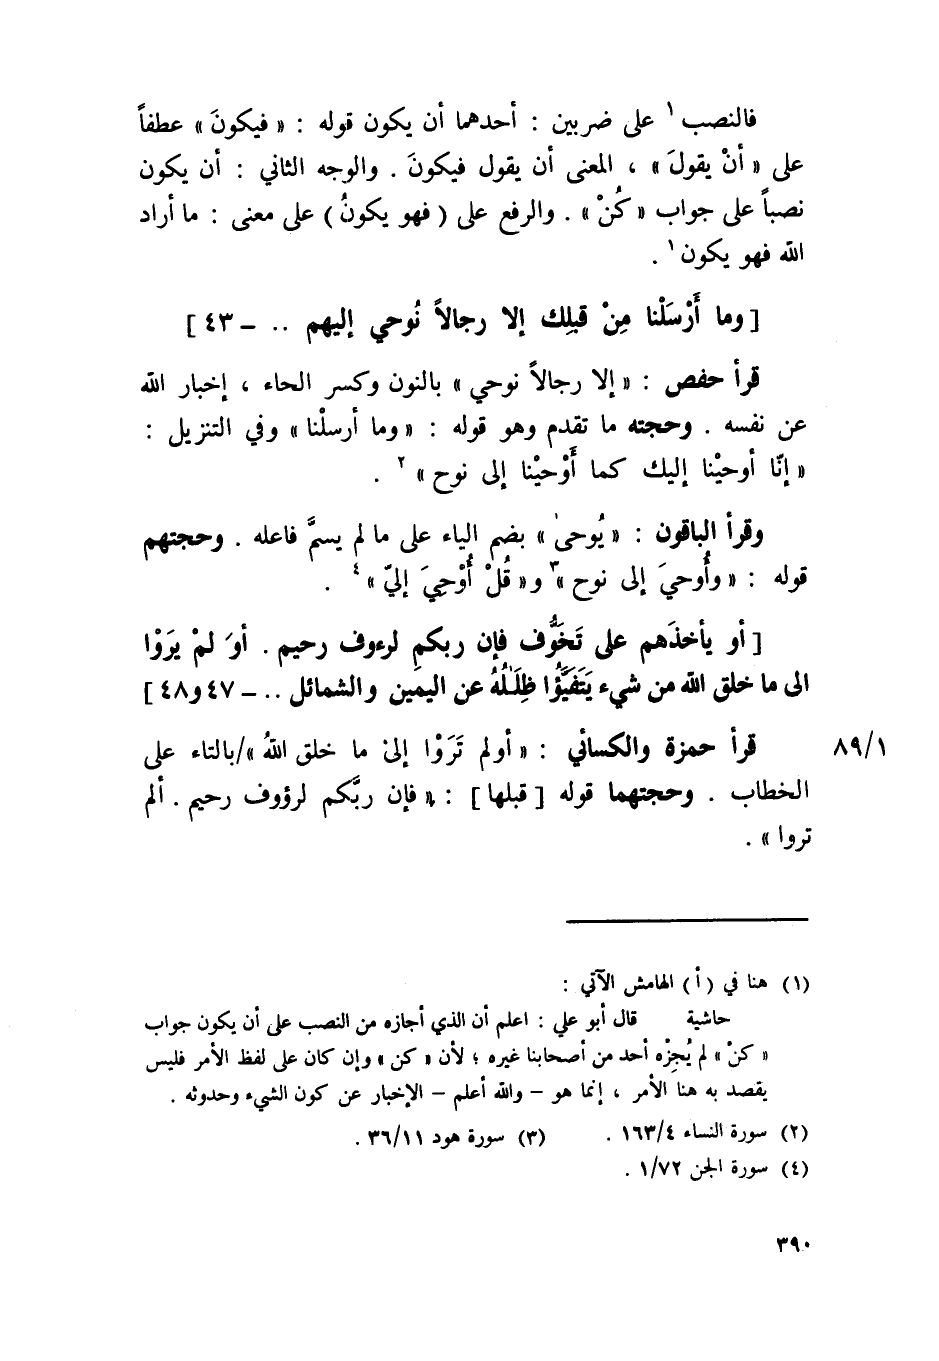 فالنصب ١ على ضربين : أحدهما أن يكون قوله : « فيكونَ » عطفاً
على « أنْ يقولَ » ، المعنى أن يقول فيكونَ . والوجه الثاني : أن يكون
نصباً على جواب « كُنْ » . والرفع على ( فهو يكونُ ) على معنى : ما أراد
الله فهو يكون ١ .
[ وما أَرْسَلْنا مِنْ قبلِك إلا رجالاً نُوحي إليهم .. ــ ٤٣ ]
قرأ حفص : « إلا رجالاً نوحي » بالنون وكسر الحاء ، إخبار الله
عن نفسه . وحجته ما تقدم وهو قوله : « وما أرسلْنا » وفي التنزيل :
« إنّا أوحيْنا إليك كما أَوْحيْنا إلى نوح » ٢ .
وقرأ الباقون : « يُوحىٰ » بضم الياء على ما لم يسمَّ فاعله . وحجتهم
قوله : « وأُوحيَ إلى نوح » ٣ و« قُلْ أُوْحِيَ إليّ » ٤ .
[ أو يأخذَهم على تَخَوُّف فإن ربكم لرءوف رحيم . أوَ لمْ يرَوْا
الى ما خلق الله من شيء يَتَفَيَّؤُا ظِلَـٰلُهُ عن اليمَين والشمائل .. ــ ٤٧ و٤٨ ]
٨٩/١ قرأ حمزة والكسائي : « أولم تَرَوْا إلىٰ ما خلق اللهُ »/بالتاء على
الخطاب . وحجتهما قوله [ قبلها ] : « فإن ربَّكم لرؤوف رحيم . ألم
تروا » .
(١) هنا في ( أ ) الهامش الآتي :
حاشية قال أبو علي : اعلم أن الذي أجازه من النصب على أن يكون جواب
« كنْ » لم يُجِزْه أحد من أصحابنا غيره ؛ لأن « كن » وإن كان على لفظ الأمر فليس
يقصد به هنا الأمر ، إنما هو – والله أعلم – الإخبار عن كون الشيء وحدوثه .
(٢) سورة النساء ١٦٣/٤ . (٣) سورة هود ٣٦/١١ .
(٤) سورة الجن ١/٧٢ .
٣٩٠